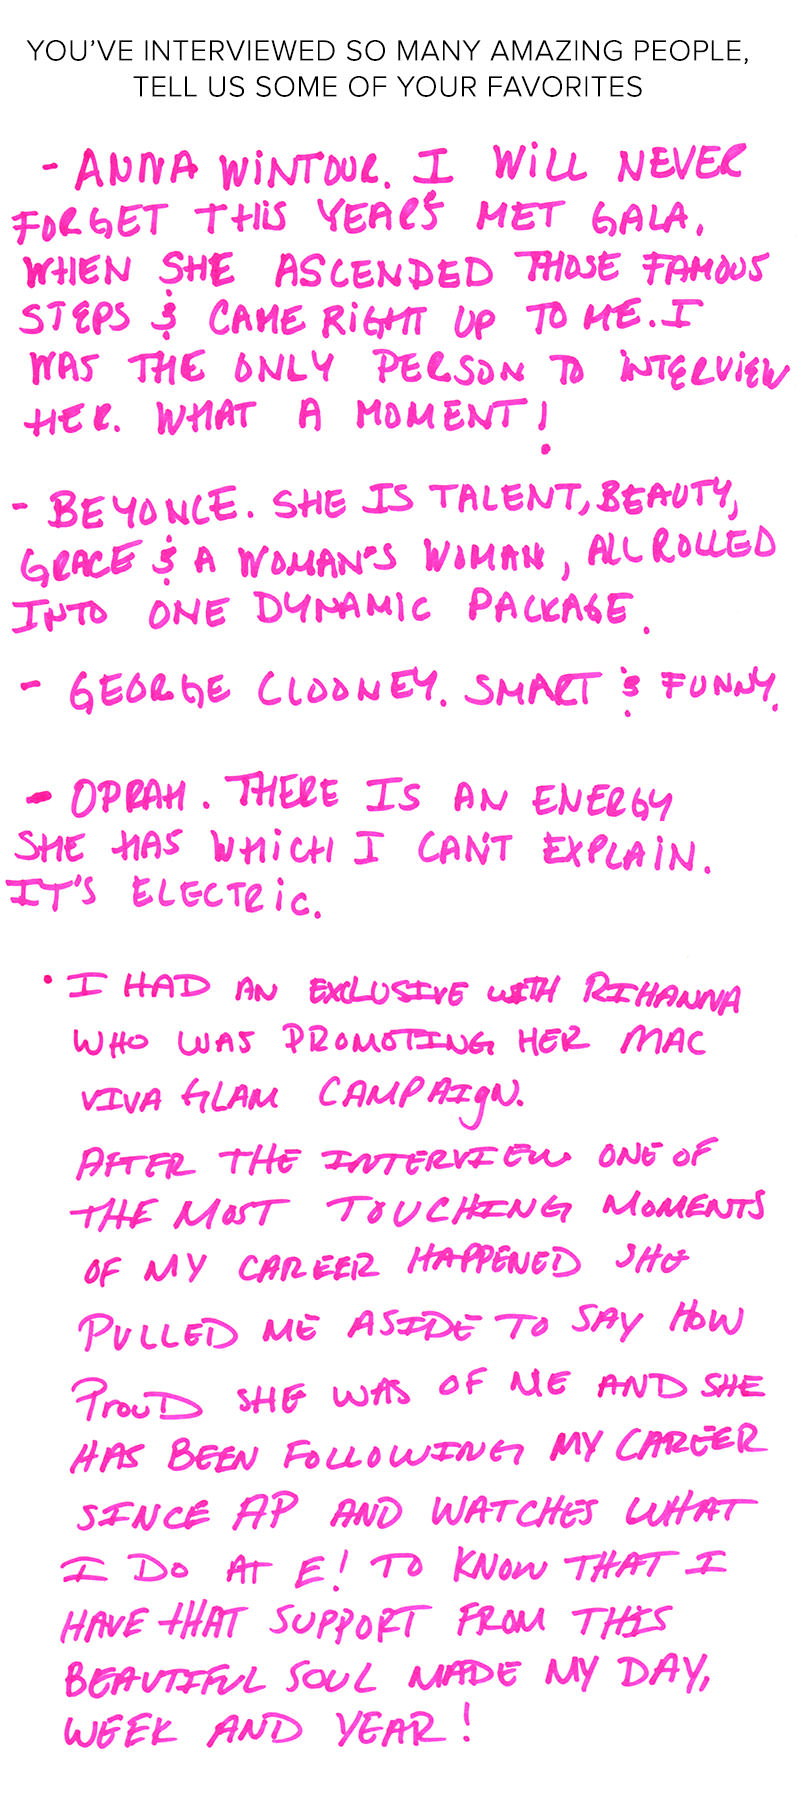 YOU'VE INTERVIEWED SO MANY AMAZING PEOPLE,
TELL US SOME OF YOUR FAVORITES
- ANNA WINTOUR. I WILL NEVER
FORGET THIS YEAR'S MET GALA,
WHEN SHE ASCENDED THOSE FAMOUS
STEPS & CAME RIGHT UP TO ME. I
WAS THE ONLY PERSON TO INTERVIEW
HER. WHAT A MOMENT!
- BEYONCE. SHE IS TALENT, BEAUTY,
GRACE & A WOMAN'S WOMAN, ALL ROLLED
INTO ONE DYNAMIC PACKAGE.
- GEORGE CLOONEY. SMART & FUNNY.
- OPRAH. THERE IS AN ENERGY
SHE HAS WHICH I CAN'T EXPLAIN.
IT'S ELECTRIC.
• I HAD AN EXCLUSIVE WITH RIHANNA
WHO WAS PROMOTING HER MAC
VIVA GLAM CAMPAIgN.
AFTER THE INTERVIEW ONE OF
THE MOST TOUCHING MOMENTS
OF MY CAREER HAPPENED SHE
PULLED ME ASIDE TO SAY HOW
ProuD SHE WAS OF ME AND SHE
HAS BEEN FOLLOWING MY CAREER
SINCE AP AND WATCHES WHAT
I DO AT E! TO KNOW THAT I
HAVE THAT SUPPORT FROM THIS
BEAUTIFUL SOUL MADE MY DAY,
WEEK AND YEAR!